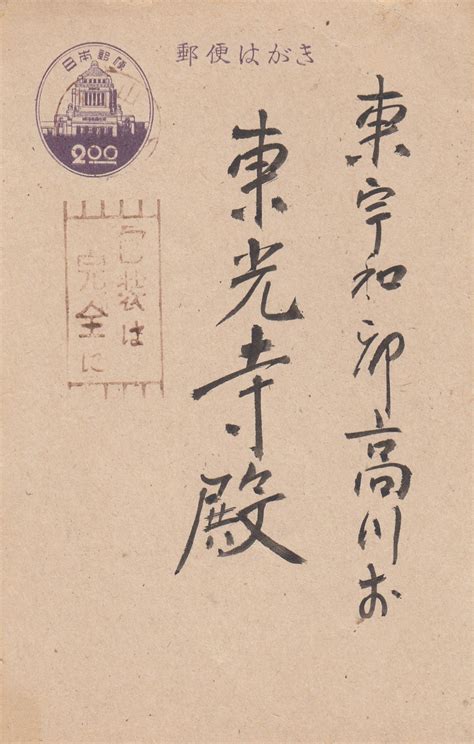 郵便はがき
日本郵便
2.00
東宇和郡高川村
東光寺殿
包装は
完全に